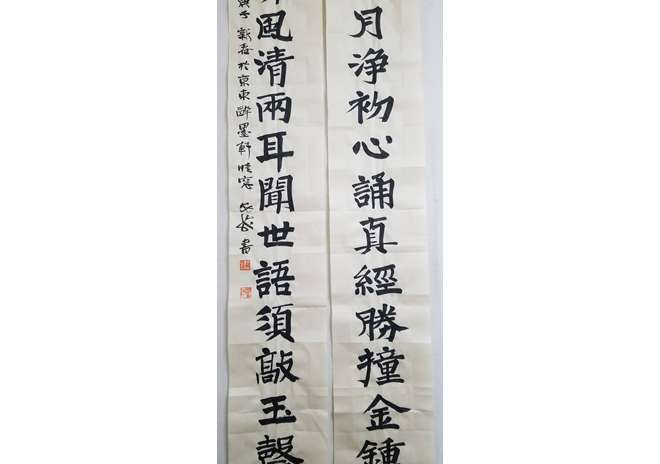 月浄初心誦真經勝撞金鍾
風清兩耳聞世語須敲玉磬
庚子新春於京東醉墨軒晴窓
書